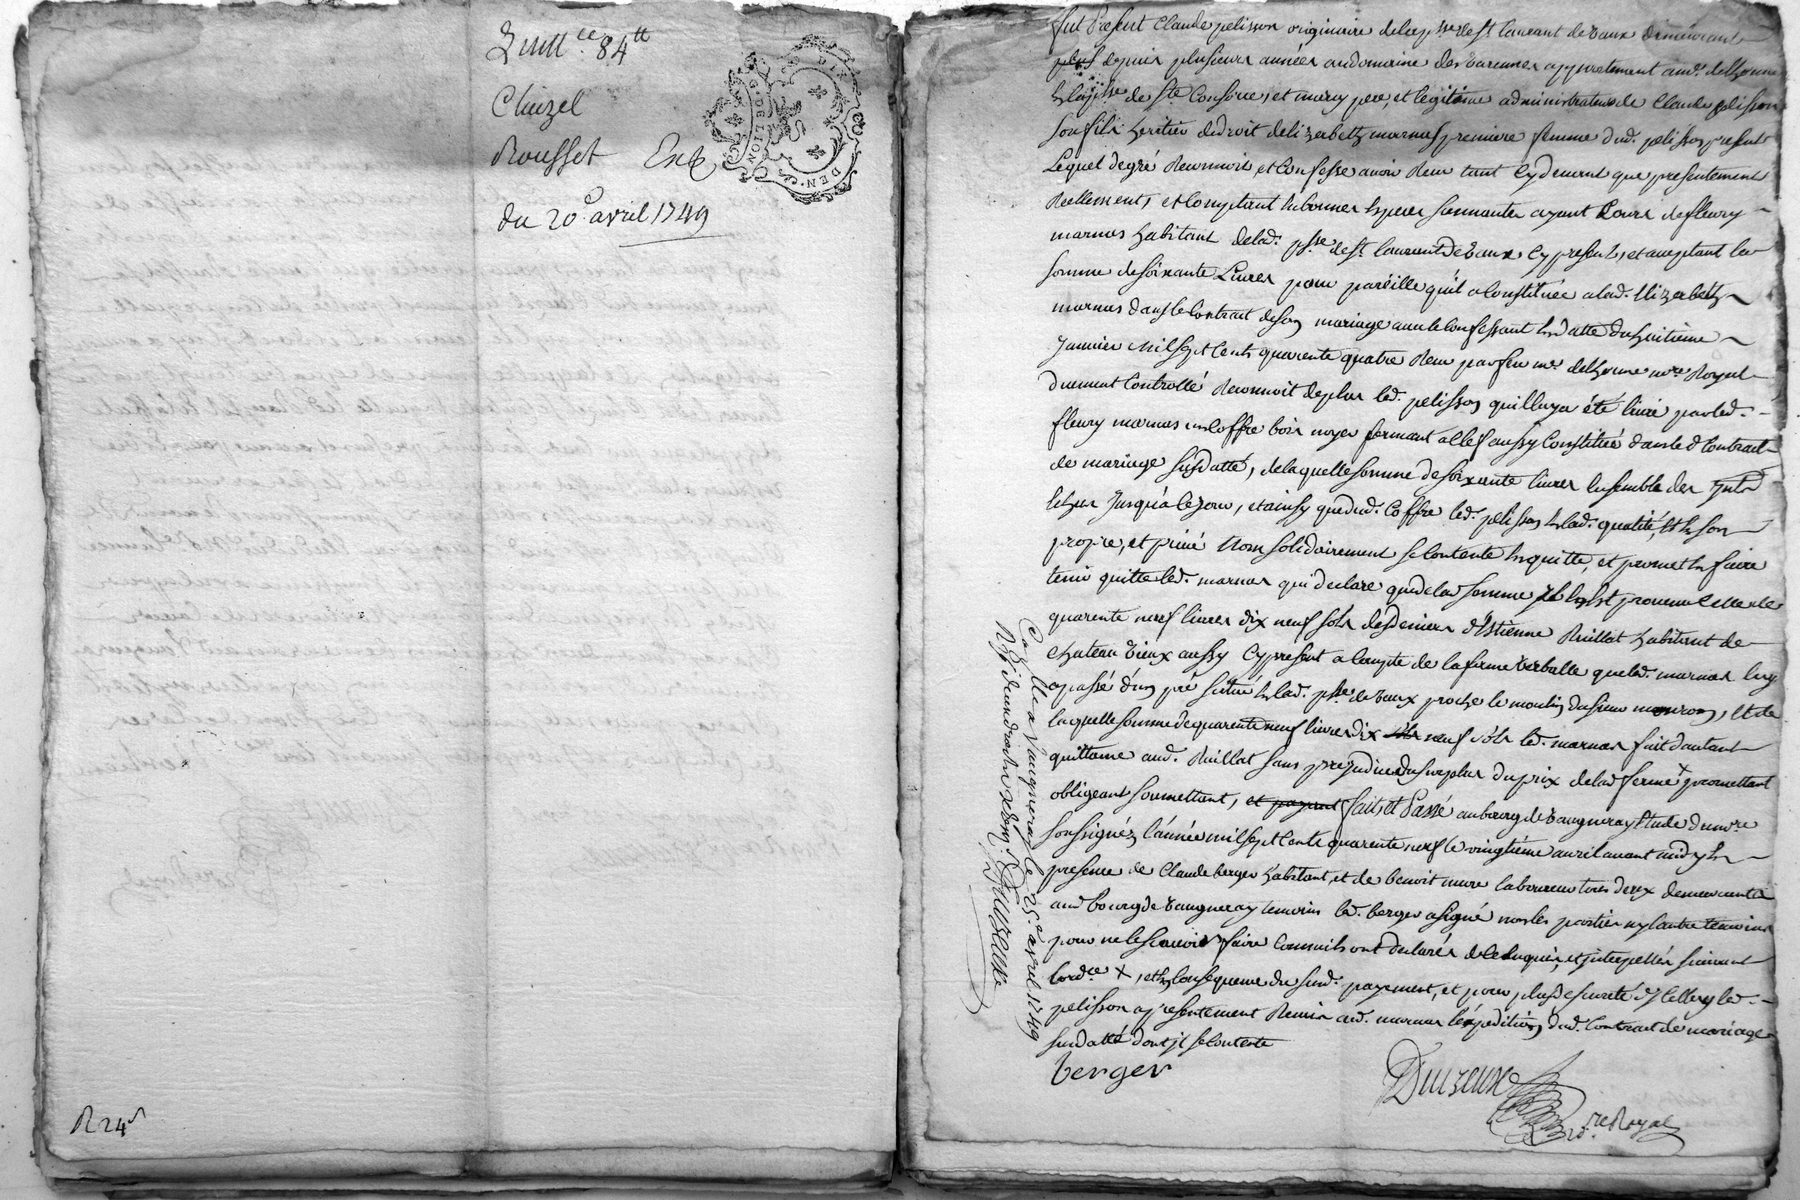 Quitt.ce 84tt
Cluzel
Rousset Exp
du 20e avril 1749
G. D. LION
DEN.
R 24s
fut Present Claude pelisson originaire de la psse de st laurant de Vaux demeurant
plus depuis plusieurs années au domaine des Varennes appartenant au sr. delhorme
psse de ste Consorce, et mary pere et legitime administrateur de Claude pelisson
son fils heritier de droit delizabeth marnas premiere femme dud. pelisson present
Lequel de gré Reconnoit et Confesse avoir Reçu tant cy devant que presentement
Reellement, et Comptant en bonnes especes sonnantes ayant Cours de fleury
marnas habitant de lad. psse de st laurent de Vaux cy present, et acceptant la
somme de soixante Livres pour pareille qu'il a Constituée a lad. Elizabeth
marnas dans le Contrat de son mariage avec le Confessant en datte du huitieme
Janvier mil sept Cents quarente quatre Reçu par feu me. delhorme nore Royal
duement Controllé Reconnoit de plus led. pelisson qu'il luy a été livré par led.
fleury marnas un Coffre bois noyer fermant a clef aussy Constitué dans led Contrat
de mariage susdatté, de laquelle somme de soixante livres ensemble des
echus Jusqu'a ce jour, et ainsy que dud. Coffre led. pelisson en lad. qualité, et en son
propre, et privé Nom solidairement se Contente en quitte, et promet en faire
tenir quitte led. marnas qui declare que de lad somme Il en est provenu celle de
quarente neuf livres dix neuf sols des deniers d'Estienne Ruillat habitant de
chateau Vieux aussy cy present a Compte de la ferme verballe que led. marnas luy
a passé d'un pré situé en lad. psse de Vaux proche le moulin du sieur, et de
laquelle somme de quarente neuf livres dix neuf sols led. marnas fait d'autant
quittance aud. Ruillat sans prejudice du surplus du prix de lad ferme x promettant
obligeant soumettant, et payant fait et Passé au bourg de Vaugneray Etude du nore
soussigné, L'année mil sept Cents quarente neuf le vingtieme avril avant midy en
presence de Claude berger habitant, et de benoit mure laboureur tous deux demeurants
aud bourg de Vaugneray temoins led. berger a signé non les parties ny l'autre temoins
pour ne le scavoir faire Comme ils ont declarés de ce enquis, et interpellés suivant
lord.ce x, et en Consequence du sud. payement, et pour plus de sureté d'Icelluy led.
pelisson a presentement Remis aud. marnas l'expedition dud. Contrat de mariage
susdatté dont il se Contente
berger
Duizeux
no.re Royal
Con.llé a Vaugneray le 25e avril 1749